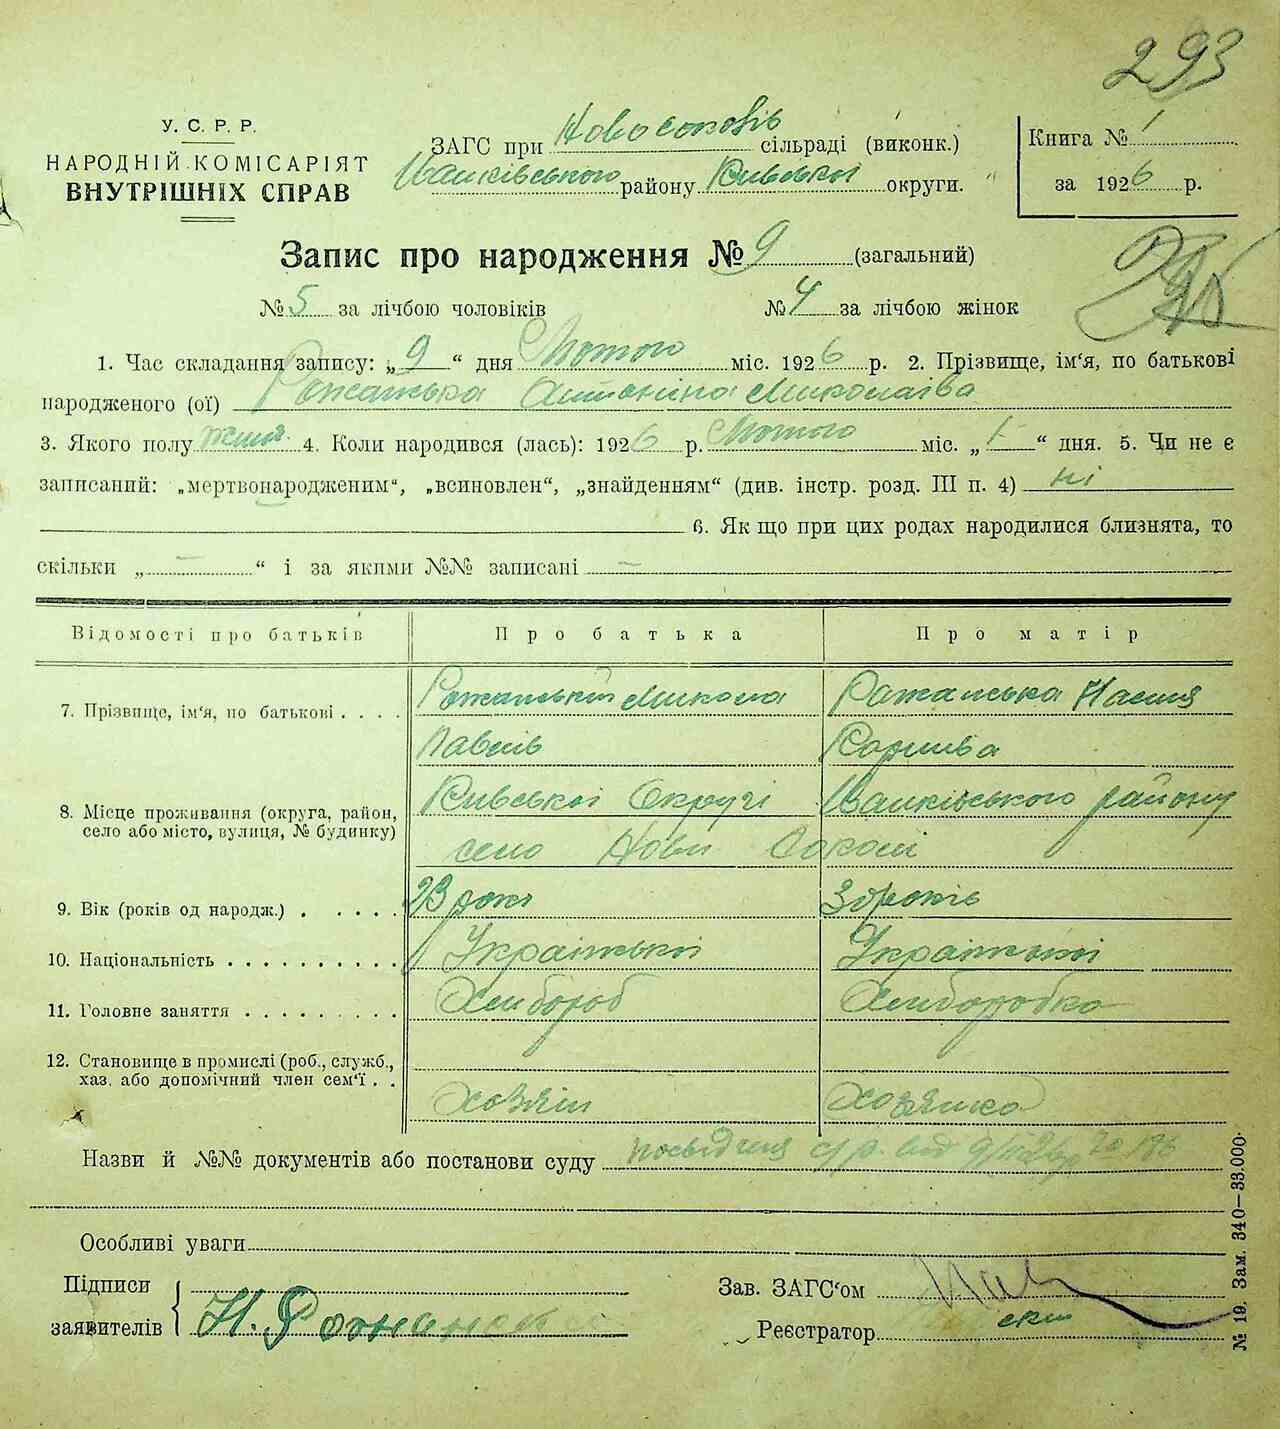 293
У. С. Р. Р.
НАРОДНІЙ КОМІСАРІЯТ
ВНУТРІШНІХ СПРАВ
ЗАГС при Новосоковів сільраді (виконк.)
Іванківського району Київської округи.
Книга № 1
за 1926 р.
Запис про народження № 9 (загальний)
№ 5 за лічбою чоловіків № 4 за лічбою жінок
1. Час складання запису: „9“ дня Лютого міс. 1926 р. 2. Прізвище, ім'я, по батькові
народженого (ої) Рожанська Антоніна Миколаівва
3. Якого полу жин. 4. Коли народився (лась): 1926 р. Лютого міс. „1“ дня. 5. Чи не є
записаний: „мертвонародженим“, „всиновлен“, „знайденням“ (див. інстр. розд. III п. 4) ні
6. Як що при цих родах народилися близнята, то
скільки „ — “ і за якими №№ записані —
Відомості про батьків Про батька Про матір
7. Прізвище, ім'я, по батькові . . . . Рожанський Микола Рожанська Настя
Павлів
8. Місце проживання (округа, район, Київської Округі Іванківського району
село або місто, вулиця, № будинку) село Нови Соколі
9. Вік (років од народж.) . . . . . . 23 роки 30 років
10. Національність . . . . . . . . . . Української Українскої
11. Головне заняття . . . . . . . . . Хлибороб Хлиборобка
12. Становище в промислі (роб., служб.,
хаз. або допомічний член сем'ї . . Хозяін Хозяйка
Назви й №№ документів або постанови суду посвідчиня с/р. від
Особливі уваги
Підписи
заявителів Н. Рожанский
Зав. ЗАГС'ом
Реєстратор
№ 19. Зам. 340—33.000.